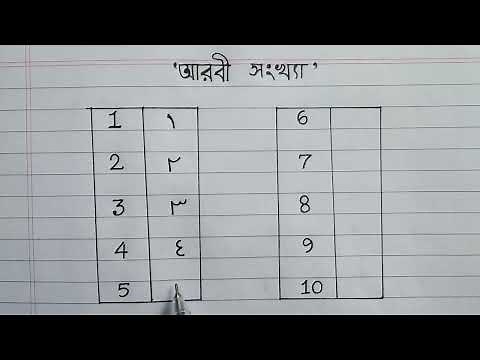 'আরবী সংখ্যা'
1 ١
2 ٢
3 ٣
4 ٤
5
6
7
8
9
10